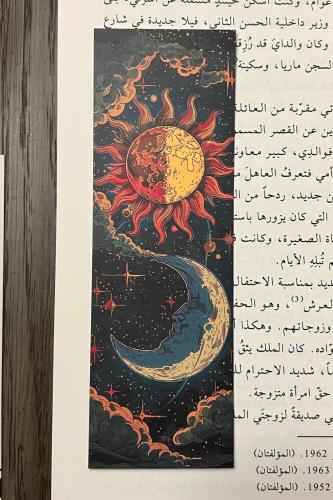 وزير داخلية الحسن الثاني، فيلا جديدة في شارع
وكان والدايَ قد رُزِقا
السجن ماريا، وسكينة
تي مقرّبة من العائلة
ين عن القصر المسم
فوالدِي، كبير معاون
أمي فتعرفُ العاهل م
ن جديد، ردحاً من ال
التي كان يزورها باست
اة الصغيرة، وكانت
م تُبلِهِ الأيام.
ديد بمناسبة الاحتفال
العرش(3)، وهو الحف
وزوجاتهم. وهكذا أ
ّاده. كان الملك يثقُ
ماً، شديد الاحترام لل
حقّ امرأة متزوجة.
ي صديقةً لزوجتَي الم
1962. (المؤلفتان)
1963. (المؤلفتان)
1952. (المؤلفتان)